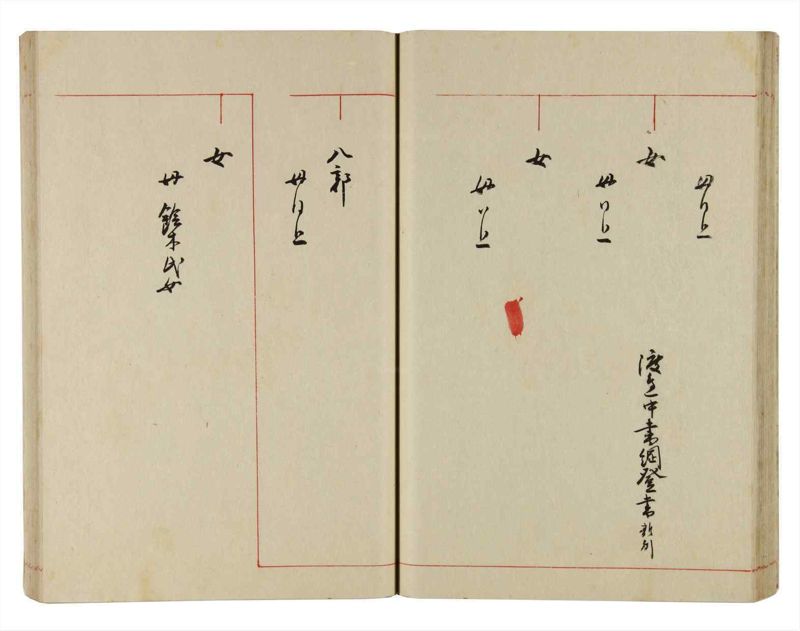 母同上
女
母同上
女
母同上
八郎
母同上
女
母鈴木氏女